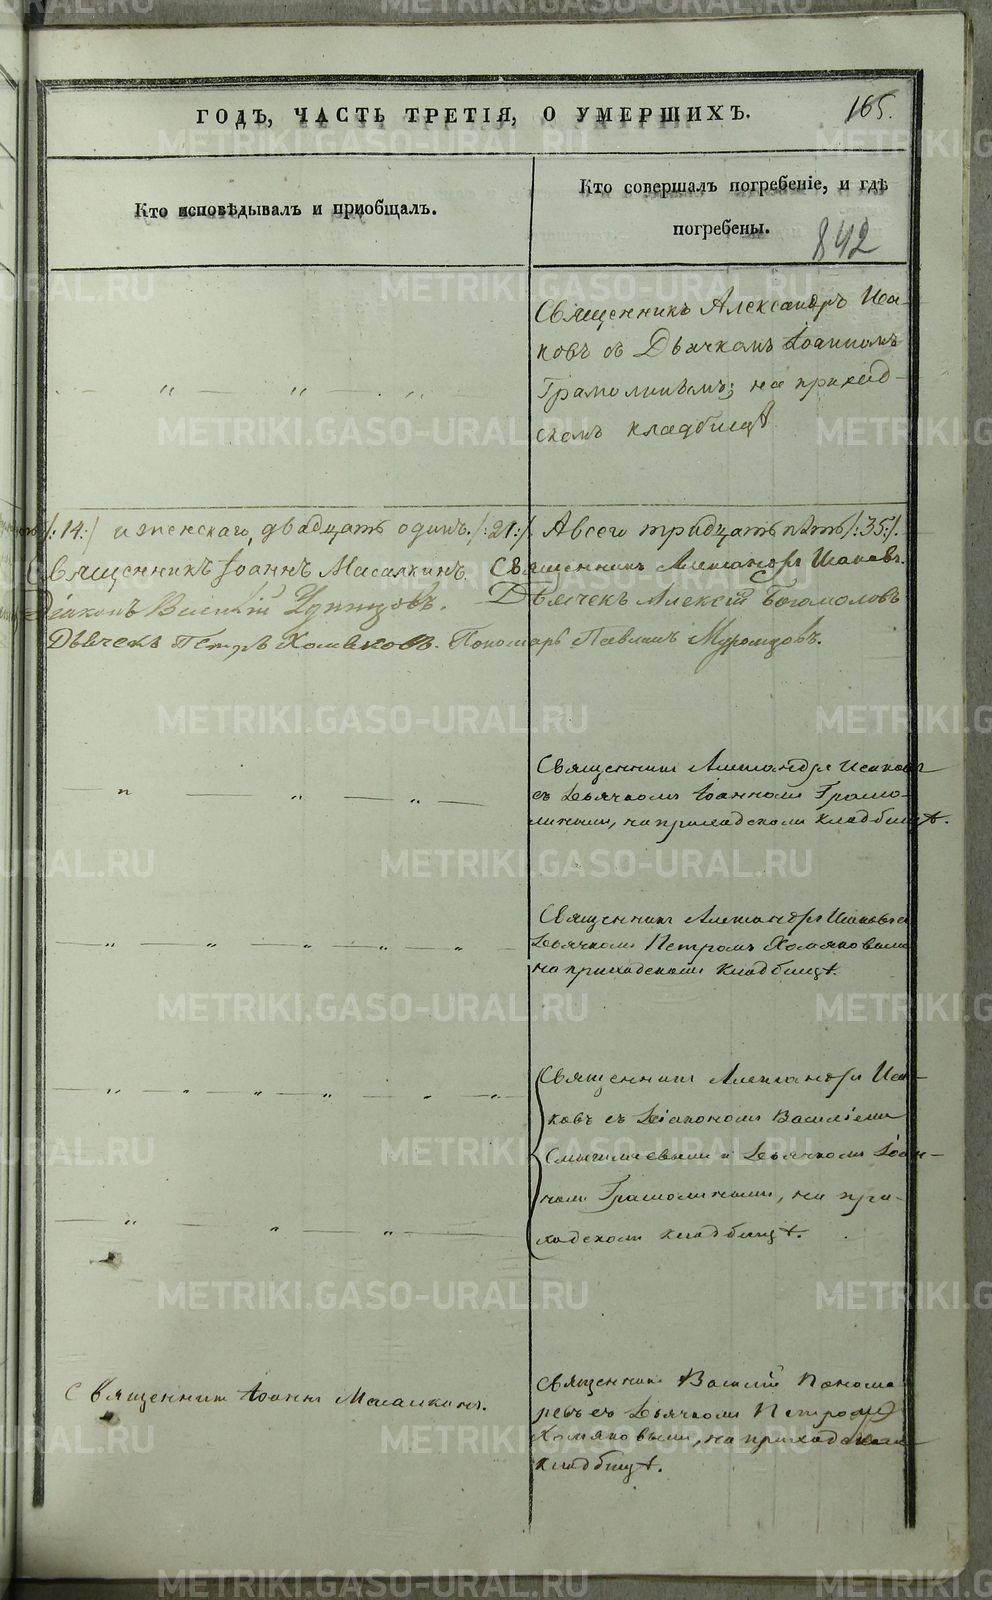 ГОДЪ, ЧАСТЬ ТРЕТІЯ, О УМЕРШИХЪ.
165.
Кто исповѣдывалъ и пріобщалъ.
Кто совершалъ погребеніе, и гдѣ
погребены.
842
Священникъ Александръ Иса-
ковъ съ Дьячкомъ Іоанномъ
Грамолинымъ; на приход-
скомъ кладбищѣ
/:14:/ и женскаго, двадцать одинъ. /:21:/. А всего тридцать пять /:35:/.
Священникъ Іоаннъ Масалкинъ. Священникъ Александръ Исаковъ.
Діаконъ Василій Дьячекъ Алексій Богомоловъ
Дьячекъ Петръ Хомяковъ. Пономарь Павлинъ Муромцовъ.
Священникъ Александръ Исаковъ
съ Дьячкомъ Іоанномъ Грамо-
линымъ, на приходскомъ кладбищѣ.
Священникъ Александръ Исаковъ съ
Дьячкомъ Петромъ Хомяковымъ
на приходскомъ кладбищѣ.
Священникъ Александръ Иса-
ковъ съ Діакономъ Василіемъ
и Дьячкомъ Іоан-
номъ Грамолинымъ, на при-
ходскомъ кладбищѣ.
Священникъ Іоаннъ Масалкинъ.
Священникъ Василій Понома
ревъ съ Дьячкомъ Петромъ
Хомяковымъ, на приходскомъ
кладбищѣ.
METRIKI.GASO-URAL.RU